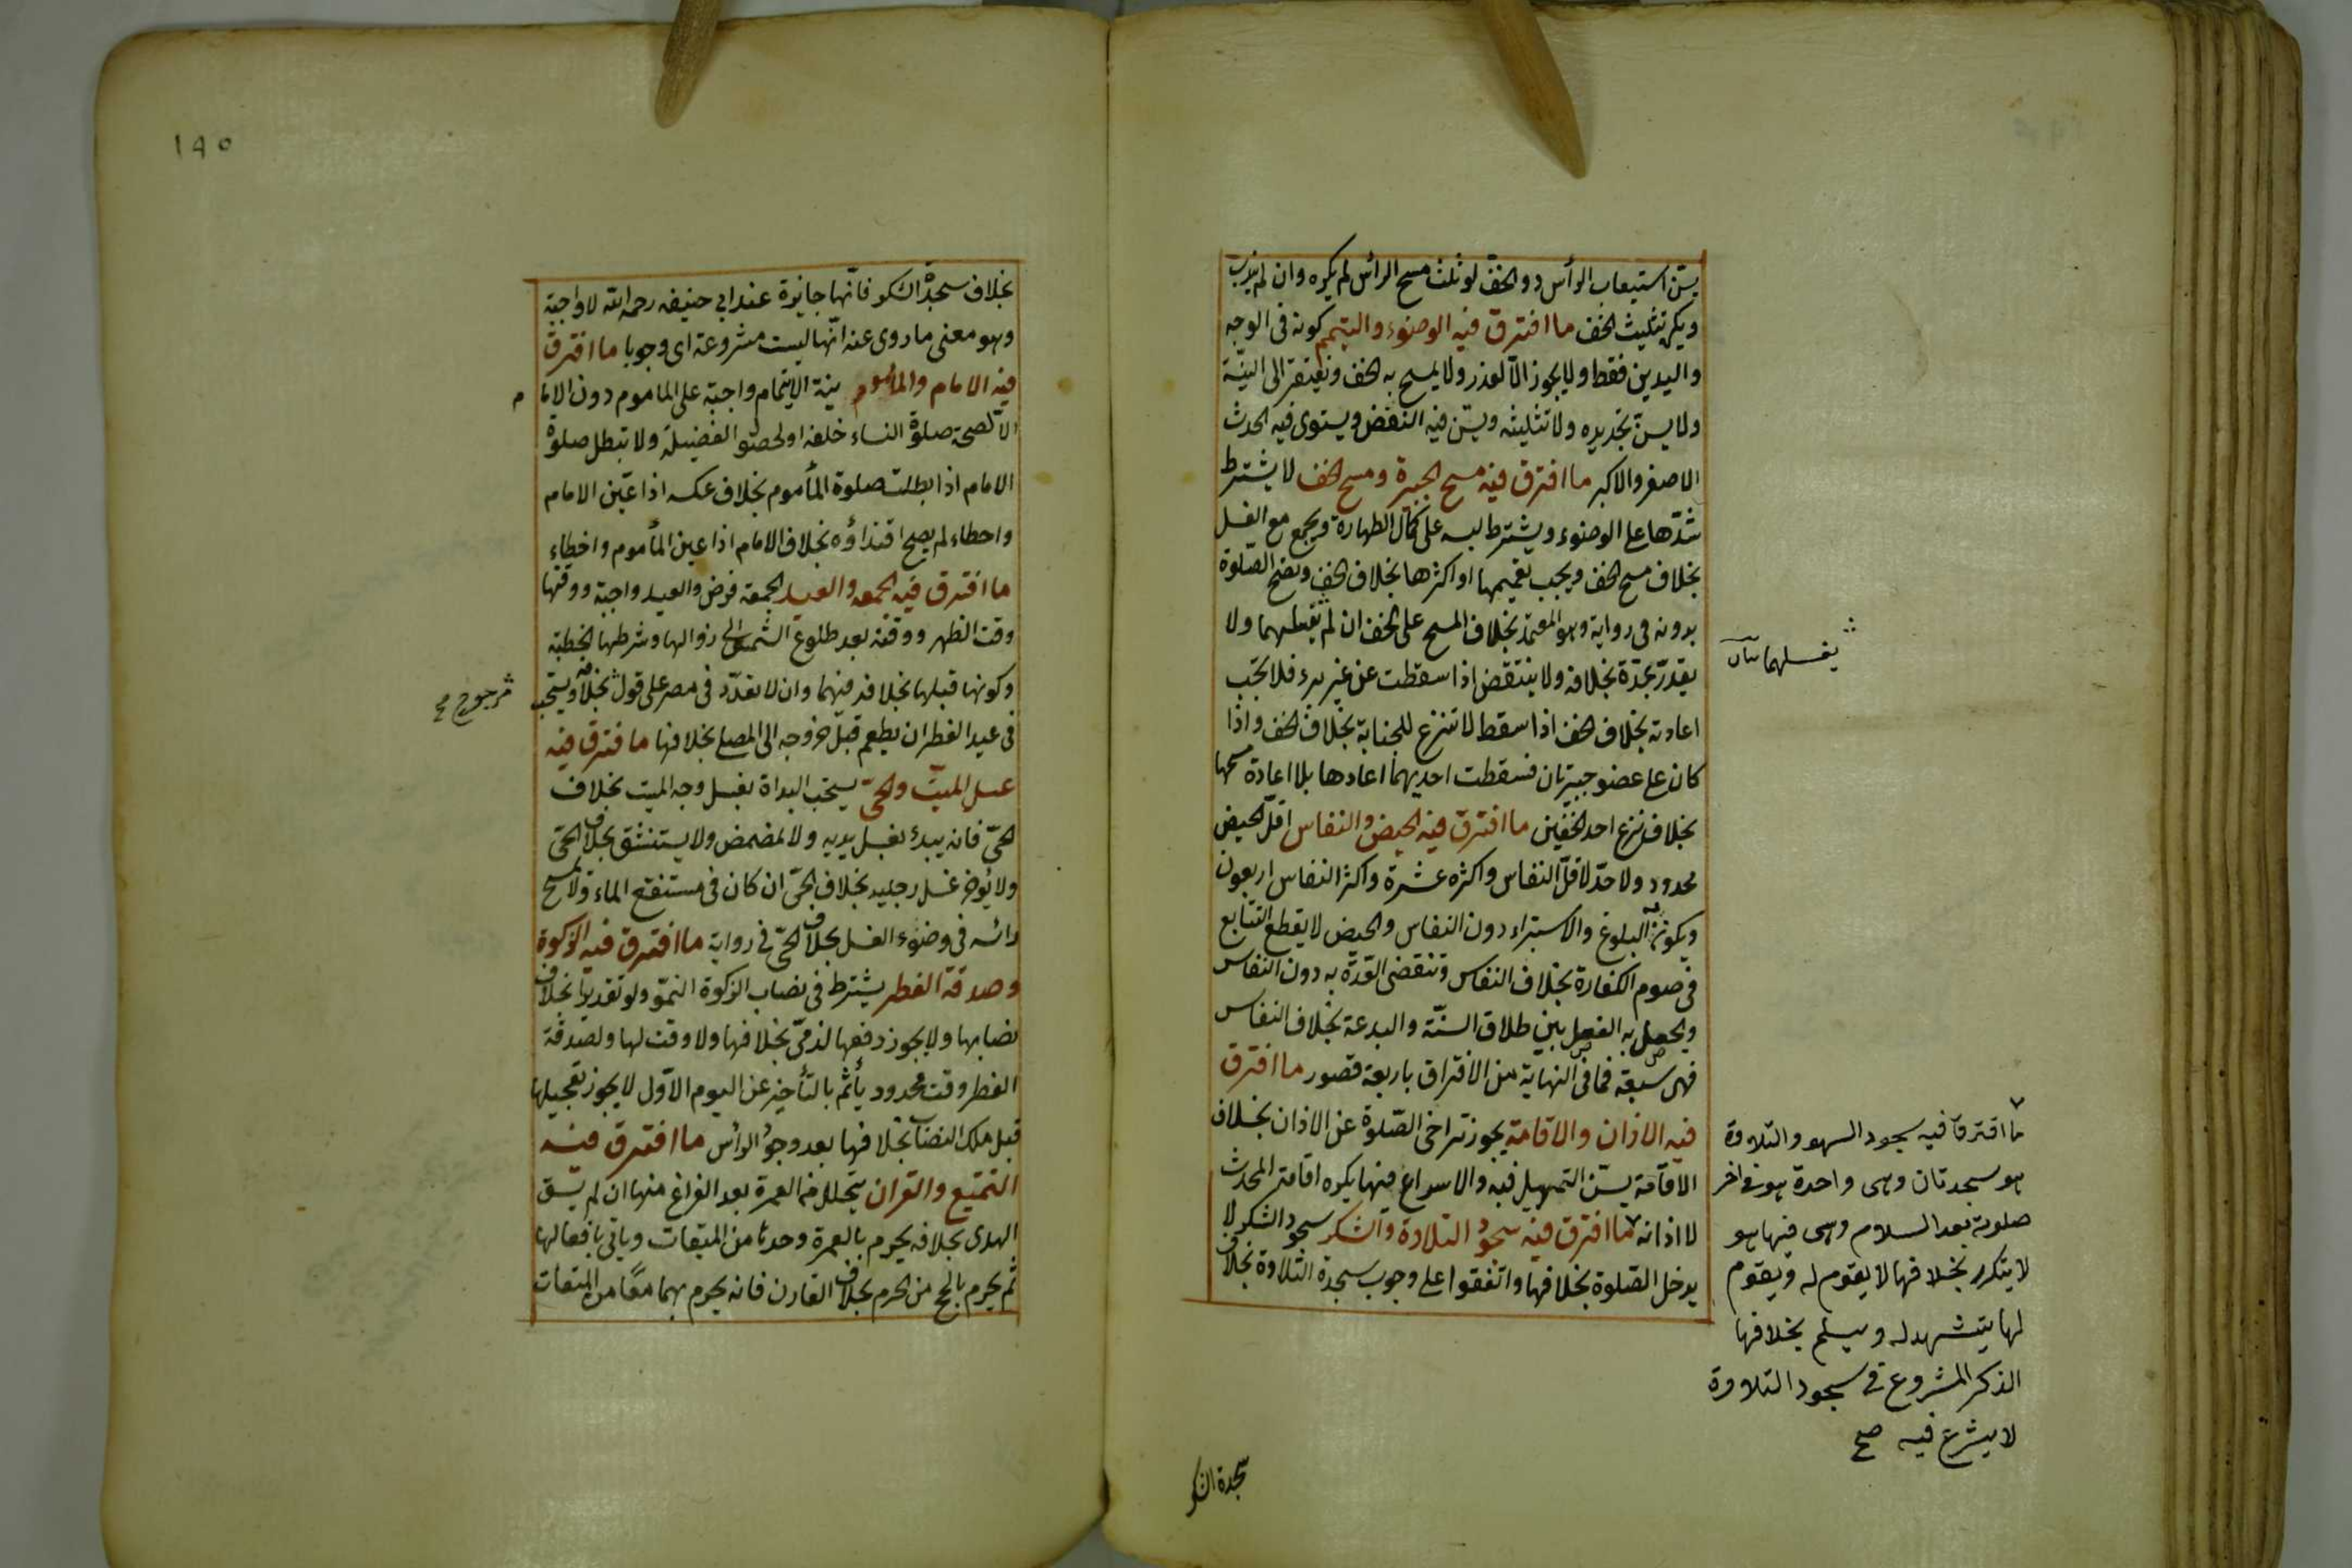 يسن استيعاب الرأس دو الخف لو ثلث مسح الرأس لم يكره وان لم يندب
ويكره تثليث الخف ما افترق فيه الوضوء والتيمم كونه فى الوجه
واليدين فقط ولا يجوز الا لعذر ولا يمسح به الخف ويفتقر الى النيّة
ولا يسن تجديده ولا تثليثه ويسن فيه النفض ويستوى فيه الحدث
الاصغر والاكبر ما افترق فيه مسح الجبيرة ومسح الخف لا يشترط
شدّها على الوضوء ويشترط لبسه على كمال الطهارة ويجمع مع الغسل
بخلاف مسح الخف ويجب تعميمها او اكثرها بخلاف الخف وتصح الصلوة
بدونه فى رواية وهو المعتمد بخلاف المسح على الخف ان لم يغطهما ولا
يغسلهما
يقدّر بمدّة بخلافه ولا ينتقض اذا سقطت عن غير برء فلا تجب
اعادته بخلاف الخف اذا سقط لا تنزع للجنابة بخلاف الخف واذا
كان على عضو جبيرتان فسقطت احديهما اعادها بلا اعادة مسحها
بخلاف نزع احد الخفين ما افترق فيه الحيض والنفاس اقلّ الحيض
محدود ولا حدّ لاقلّ النفاس واكثره عشرة واكثر النفاس اربعون
ويكون به البلوغ والاستبراء دون النفاس والحيض لا يقطع التتابع
فى صوم الكفارة بخلاف النفاس وتنقضى العدّة به دون النفاس
ويحصل به الفصل بين طلاق السنّة والبدعة بخلاف النفاس
فهى سبعة فما فى النهاية من الافتراق باربعة قصور ما افترق
فيه الاذان والاقامة يجوز تراخى الصّلوة عن الاذان بخلاف
الاقامة يسن التمهيل فيه والاسراع فيها يكره اقامة المحدث
لا اذانه ما افترق فيه سجود التلاوة والشكر سجود الشكر لا
يدخل الصّلوة بخلافها واتفقوا على وجوب سجدة التلاوة بخلاف
ما افترقا فيه سجود السهو والتلاوة
هو سجدتان وهى واحدة هو فى اخر
صلوته بعد السلام وهى فيها هو
لا يتكرر بخلافها لا يقوم له ويقوم
لها يتشهد له ويسلم بخلافها
الذكر المشروع فى سجود التلاوة
لا يشرع فيه صح
سجدة الشكر
١٩٥
بخلاف سجدة الشكر فانّها جايزة عند ابي حنيفه رحمه الله لا واجبة
وهو معنى ما روى عنه انّها ليست مشروعة اى وجوبا ما افترق
فيه الامام والمأموم نية الايتمام واجبة على المأموم دون الامام
الّا لصحة صلوة النساء خلفه او لحصول الفضيلة ولا تبطل صلوة
الامام اذا بطلت صلوة المأموم بخلاف عكسه اذا عيّن الامام
واخطاء لم يصح اقتداؤه بخلاف الامام اذا عين المأموم واخطاء
ما افترق فيه الجمعه والعيد الجمعة فرض والعيد واجبة ووقتها
وقت الظهر ووقته بعد طلوع الشمس الى زوالها وشرطها الخطبة
وكونها قبلها بخلافه فيهما وان لا تعدّد فى مصر على قول بخلافه ويستحب
مرجوح صح
فى عيد الفطر ان يطعم قبل خروجه الى المصلى بخلافها ما فترق فيه
غسل الميت والحىّ يستحب البداة بغسل وجه الميت بخلاف
الحىّ فانه يبدأ بغسل يديه ولا يمضمض ولا يستنشق بخلاف الحىّ
ولا يؤخر غسل رجليه بخلاف الحىّ ان كان فى مستنقع الماء ولا يمسح
رأسه فى وضوء الغسل بخلاف الحىّ فى رواية ما افترق فيه الزكوة
وصدقة الفطر يشترط فى نصاب الزكوة النموّ ولو تقديرا بخلاف
نصابها ولا يجوز دفعها لذمىّ بخلافها ولا وقت لها ولصدقة
الفطر وقت محدود يأثم بالتأخير عن اليوم الاوّل لا يجوز تعجيلها
قبل ملك النصاب بخلافها بعد وجود الرأس ما افترق فيه
التمتع والقران يتحلل من العمرة بعد الفراغ منها ان لم يسق
الهدى بخلافه يحرم بالعمرة وحدها من الميقات ويأتى بافعالها
ثم يحرم بالحج من الحرم بخلاف القارن فانه يحرم بهما معًا من الميقات